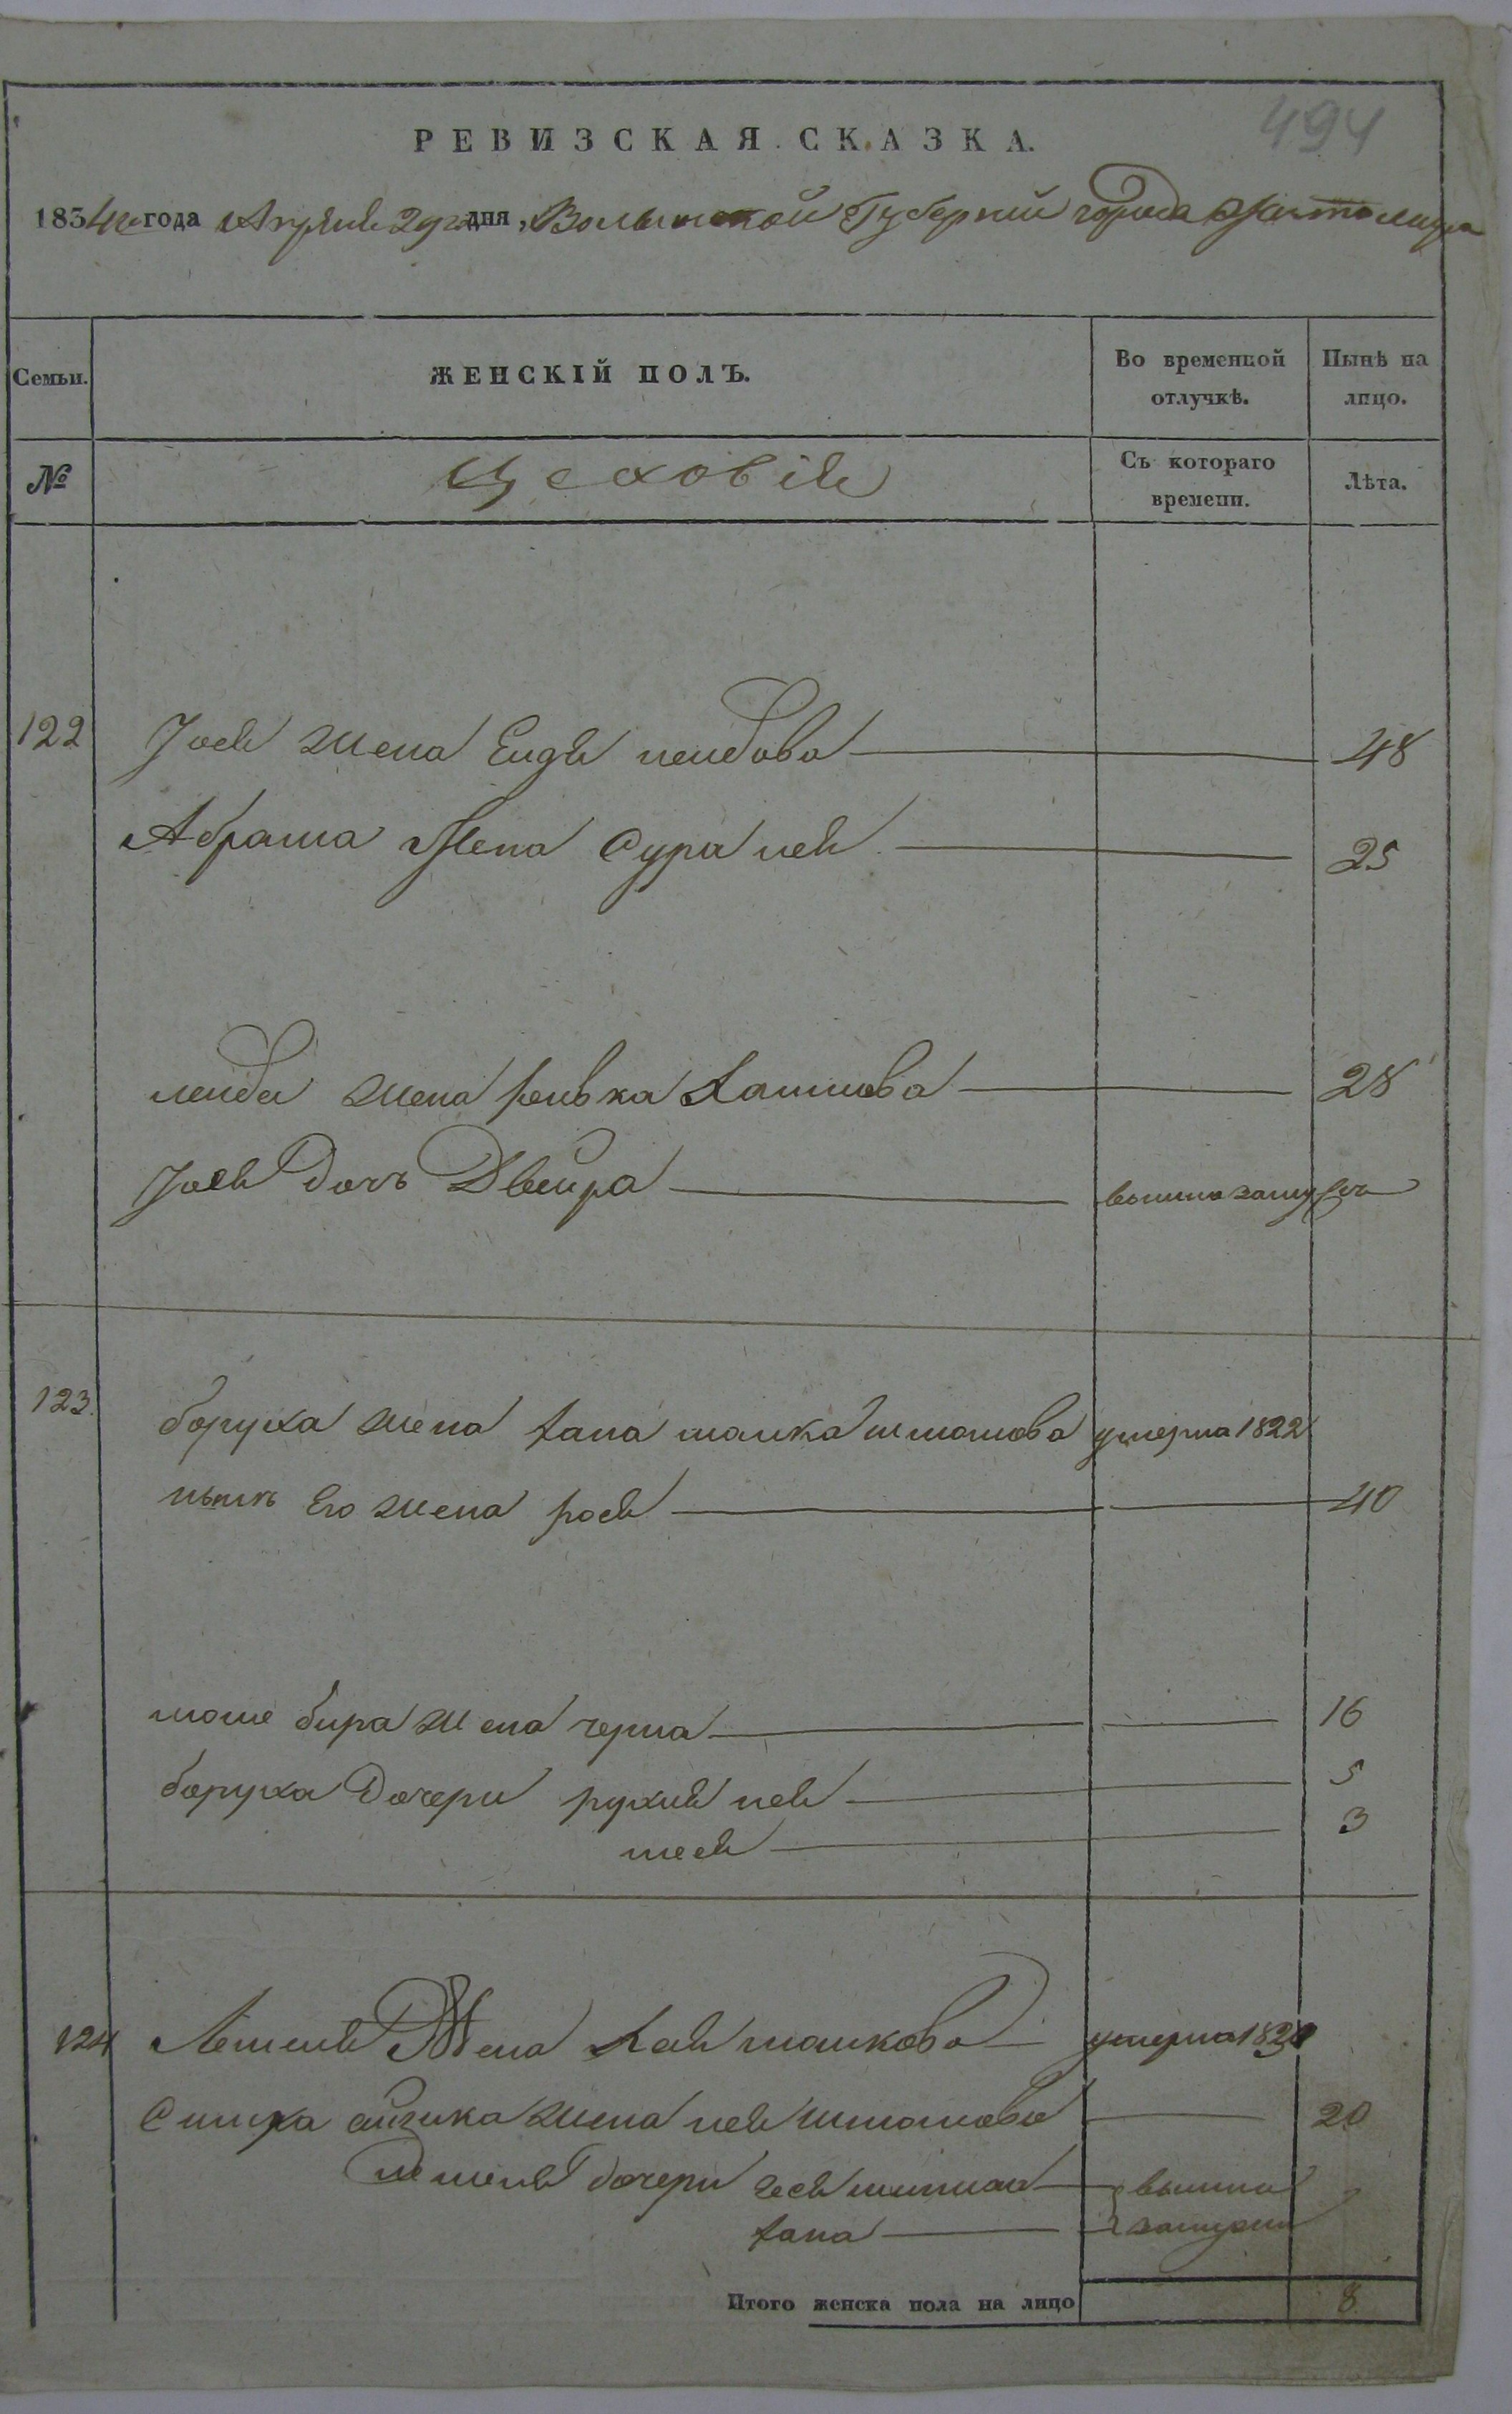 494
РЕВИЗСКАЯ СКАЗКА.
1834го года Апреля 29го дня, Волынской Губернии города Житомира
Семьи.
ЖЕНСКІЙ ПОЛЪ.
Во временной отлучкѣ.
Нынѣ на лицо.
№
Цеховіе
Съ котораго времени.
Лѣта.
122 Іося жена Ейдля лейбова 48
Абрама Жена Сура лея 25
лейба жена ривка 28
Іося Дочь Двейра вышла замужъ
123. боруха жена хана умерла 1822
Его жена рося 40
жена черна 16
боруха Дочери рухля лея 5
3
124 Жена Хая умерла
Симха айзика жена лея 20
дочери вышли
хана замужъ
Итого женска пола на лицо 8